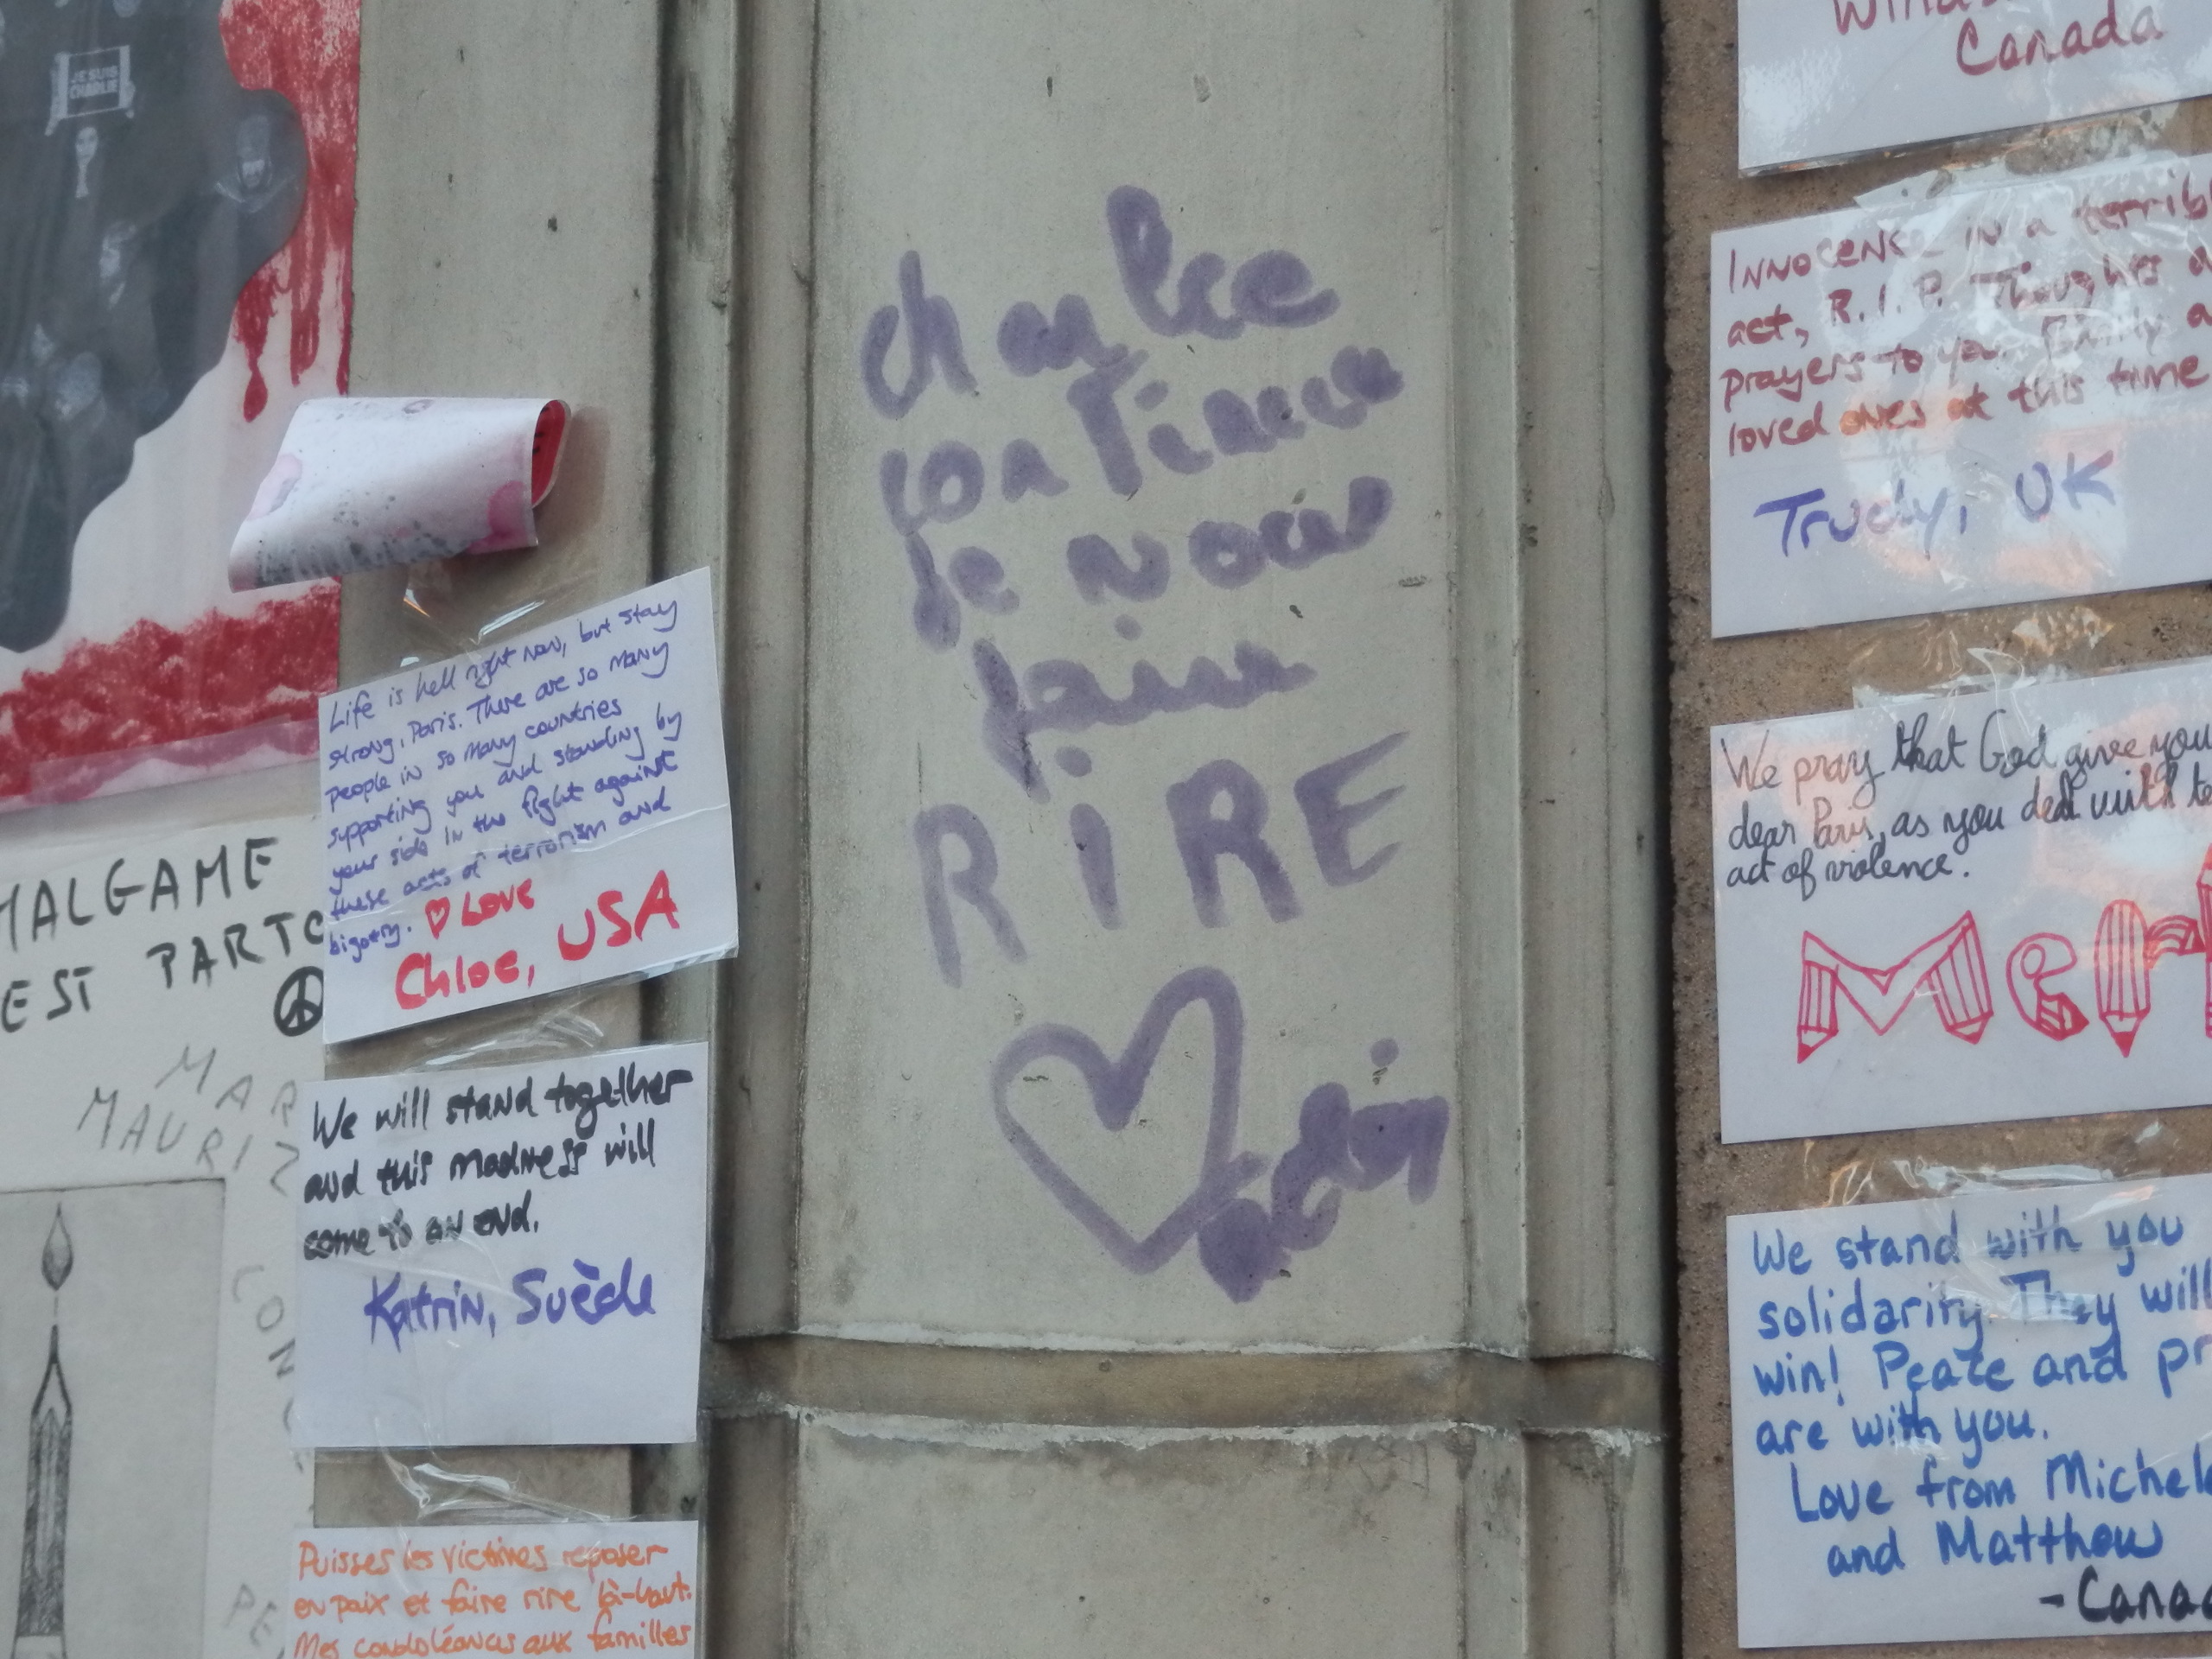 JE SUIS
CHARLIE
Life is hell right now, but stay
strong, Paris. There are so many
people in so many countries
supporting you and standing by
your side in the fight against
these acts of terrorism and
bigotry. Love
Chloe, USA
MALGAME
EST PARTO
MAR
MAURIZ
CON
PE
We will stand together
and this madness will
come to an end.
Katrin, Suède
Puisses les victimes reposer
en paix et faire rire là-haut.
Mes condoléances aux familles
charlie
continue
de nous
faire
RiRE
Canada
Innocence in a terrib
act, R.I.P. Thoughts a
prayers to your family a
loved ones at this time
Trudy, UK
We pray that God give you
dear Paris, as you deal with te
act of violence.
Mer
We stand with you
solidarity. They will
win! Peace and pr
are with you.
Love from Michel
and Matthow
-Cana